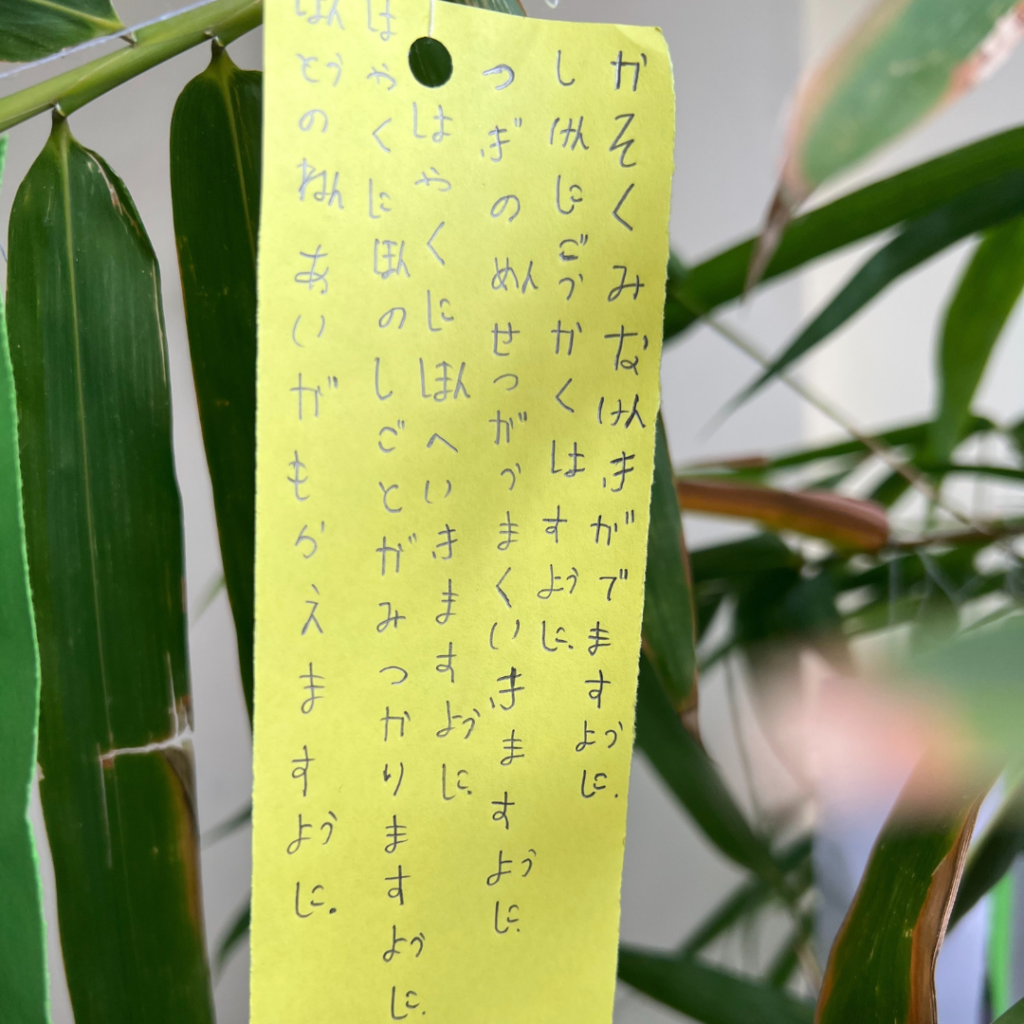 かそくみなけんきがでますように.
しけんにごうかくはすように.
つぎのめんせつがうまくいきますように.
はやくにほんへいきますように.
はやくにほんのしごとがみつかりますように.
ほんとうのねんあいがもらえますように.